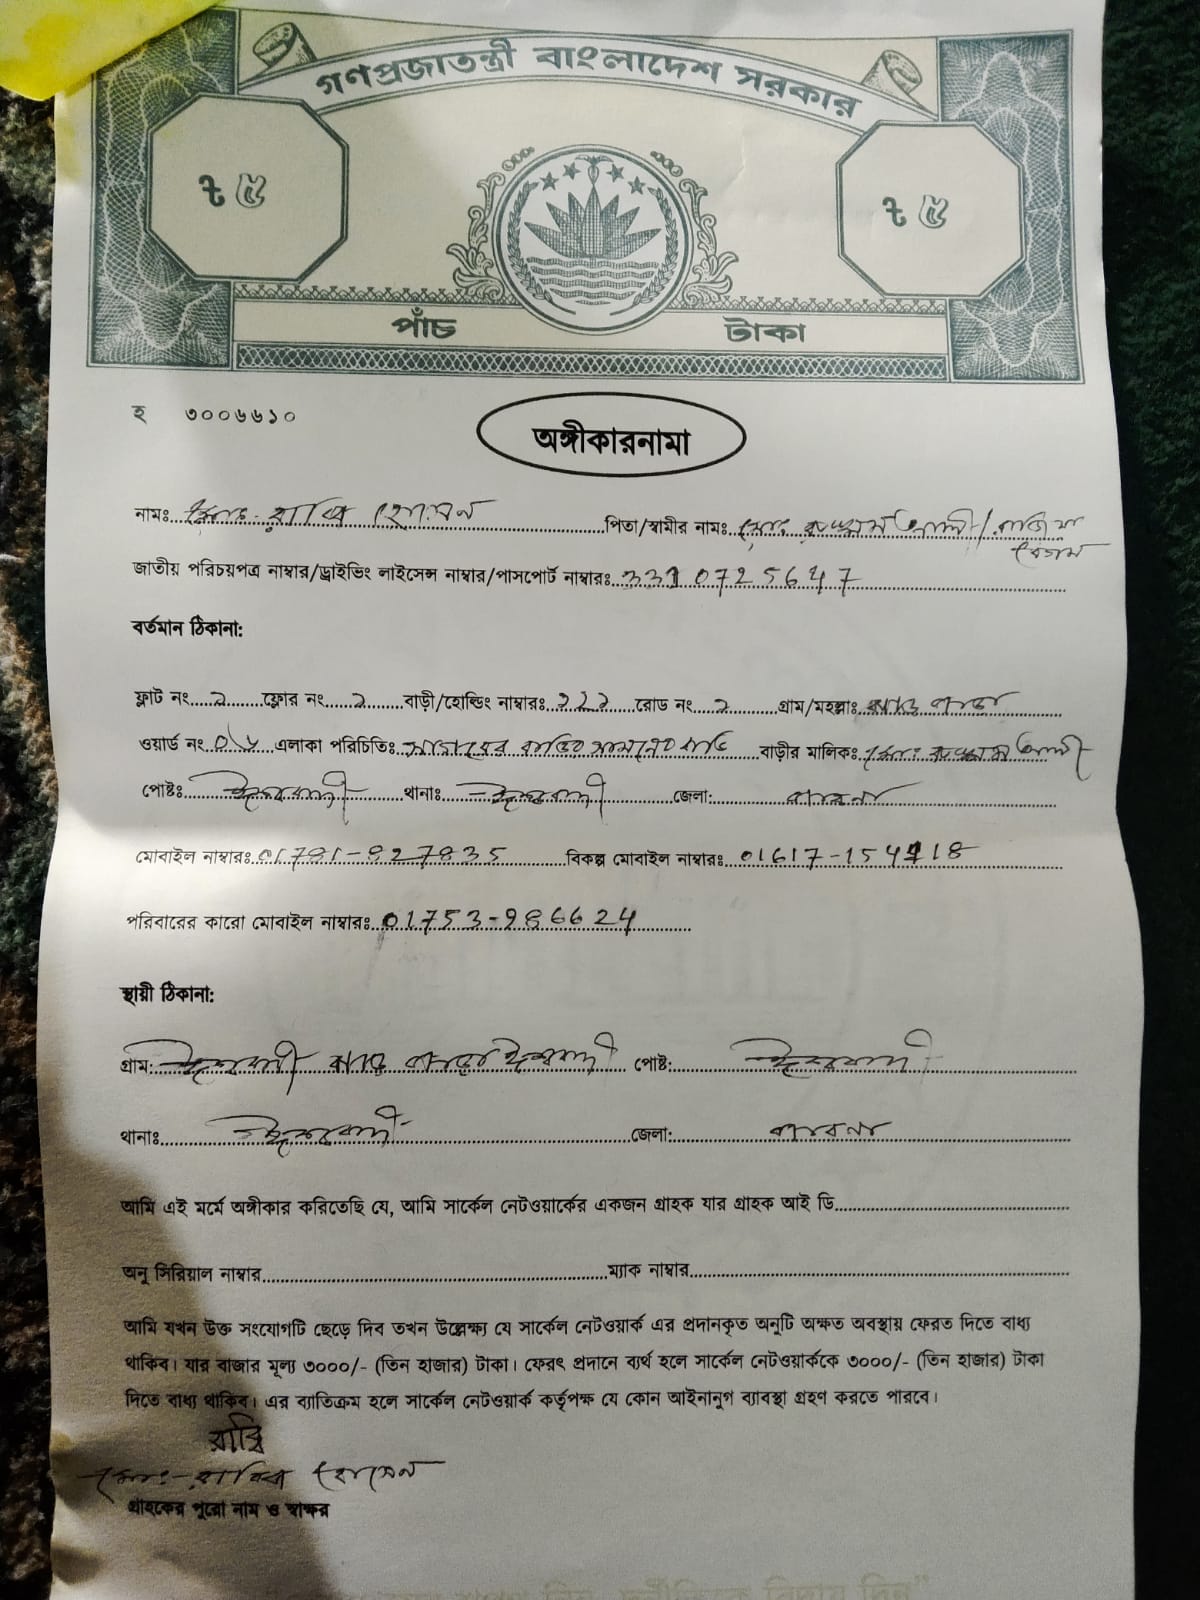 গণপ্রজাতন্ত্রী বাংলাদেশ সরকার
ট ৫ ট ৫
পাঁচ টাকা
হ ৩০০৬৬১০
অঙ্গীকারনামা
নামঃ মোঃ রাব্বি হোসেন পিতা/স্বামীর নামঃ মোঃ আলী/
বেগম
জাতীয় পরিচয়পত্র নাম্বার/ড্রাইভিং লাইসেন্স নাম্বার/পাসপোর্ট নাম্বারঃ 3310725647
বর্তমান ঠিকানা:
ফ্লাট নং ২ ফ্লোর নং ২ বাড়ী/হোল্ডিং নাম্বারঃ রোড নং ২ গ্রাম/মহল্লাঃ পাড়া
ওয়ার্ড নং এলাকা পরিচিতিঃ বাড়ির সামনের বাড়ি বাড়ীর মালিকঃ মোঃ আলী
পোষ্টঃ ঈশ্বরদী থানাঃ ঈশ্বরদী জেলা: পাবনা
মোবাইল নাম্বারঃ বিকল্প মোবাইল নাম্বারঃ
পরিবারের কারো মোবাইল নাম্বারঃ 01753-986624
স্থায়ী ঠিকানা:
গ্রাম: ঈশ্বরদী পাড়া ঈশ্বরদী পোষ্ট: ঈশ্বরদী
থানাঃ ঈশ্বরদী জেলা: পাবনা
আমি এই মর্মে অঙ্গীকার করিতেছি যে, আমি সার্কেল নেটওয়ার্কের একজন গ্রাহক যার গ্রাহক আই ডি
অনু সিরিয়াল নাম্বার ম্যাক নাম্বার
আমি যখন উক্ত সংযোগটি ছেড়ে দিব তখন উল্লেক্ষ্য যে সার্কেল নেটওয়ার্ক এর প্রদানকৃত অনুটি অক্ষত অবস্থায় ফেরত দিতে বাধ্য
থাকিব। যার বাজার মূল্য ৩০০০/- (তিন হাজার) টাকা। ফেরৎ প্রদানে ব্যর্থ হলে সার্কেল নেটওয়ার্ককে ৩০০০/- (তিন হাজার) টাকা
দিতে বাধ্য থাকিব। এর ব্যাতিক্রম হলে সার্কেল নেটওয়ার্ক কর্তৃপক্ষ যে কোন আইনানুগ ব্যাবস্থা গ্রহণ করতে পারবে।
রাব্বি
মোঃ-রাব্বি হোসেন
গ্রাহকের পুরো নাম ও স্বাক্ষর